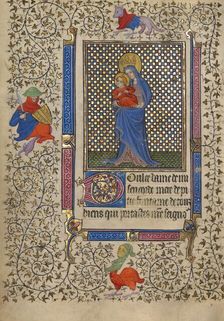 Doulce dame de mi
sericorde mere de pi
tie fontaine de tous
biens qui portastes